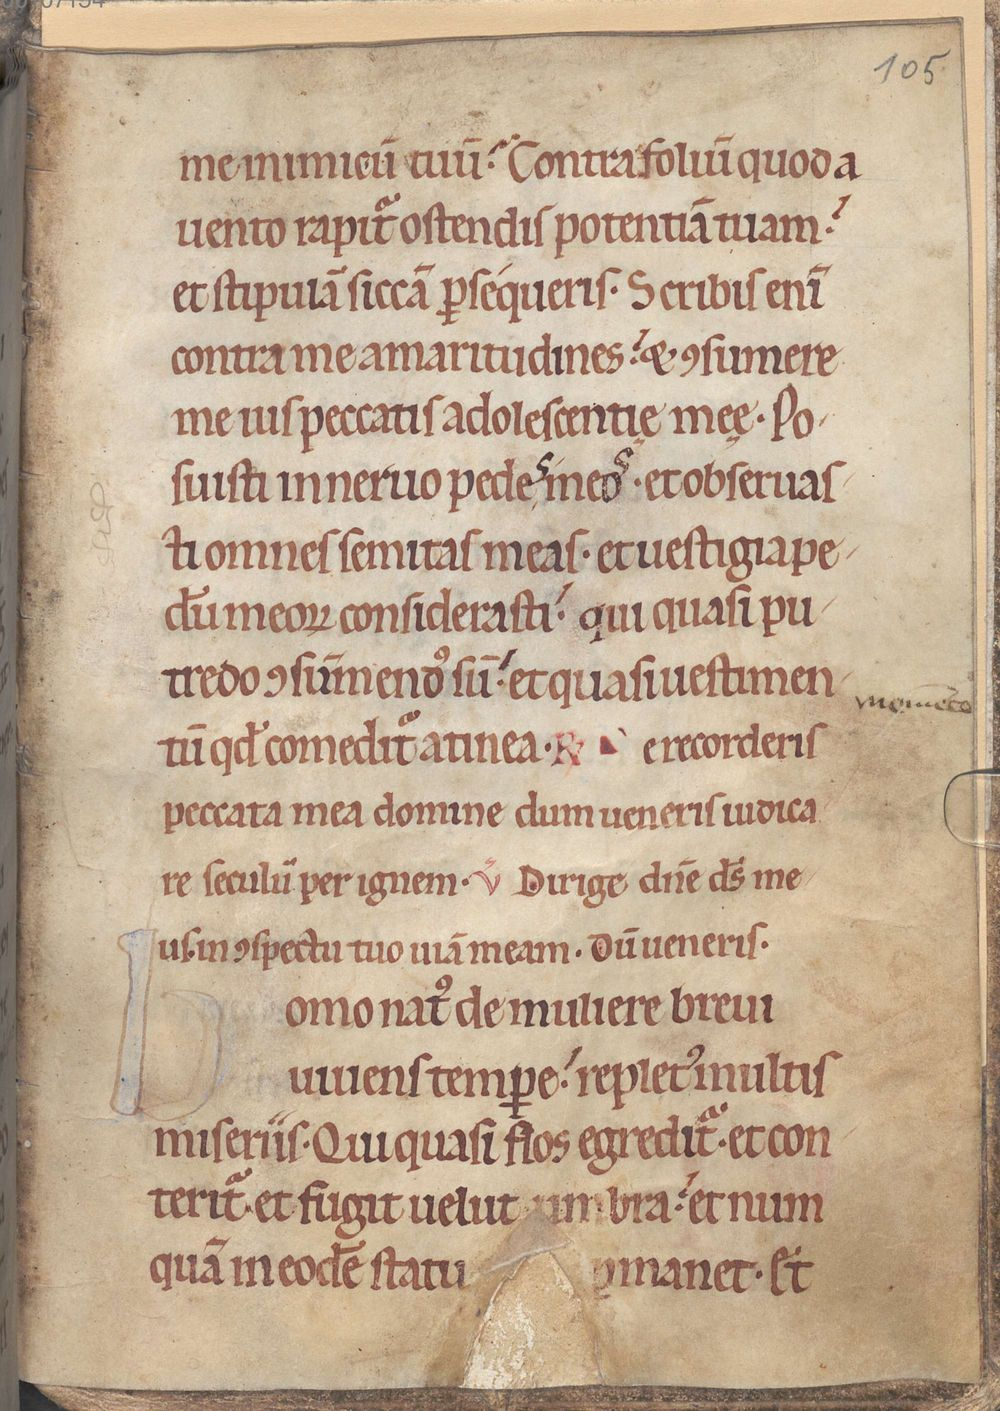 105
me inimicū tuū. Contra foliū quod a
uento rapit᷒ ostendis potentiā tuam.
et stipulā siccā ꝑséqueris. Scribis enī
contra me amaritudines. & ꝯsumere
me uis peccatis adolescentię meę. Po
suisti in neruo pedes meos. et obseruas
ti omnes semitas meas. et uestigia pe
dū meoꝝ considerasti. qui quasi pu
tredo ꝯsūmendꝰ sū. et quasi uestimen
tū qd̓ comedit᷒ a tinea. ℟ e recorderis
peccata mea domine dum ueneris iudica
re seculū per ignem. ℣ Dirige dn̄e ds̄ me
us. in ꝯspectu tuo uiā meam. Dū ueneris.
omo natꝰ de muliere breui
uiuens tempꝑe. repletꝰ multis
miseriis. Qui quasi flos egredit᷒. et con
terit᷒. et fugit uelut umbra. et num
quā in eodē statu ꝑmanet. Et